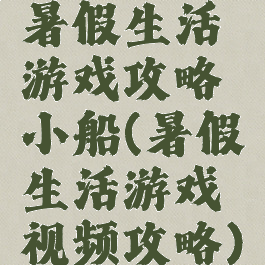 暑假生活
游戏攻略
小船(暑假
生活游戏
视频攻略)